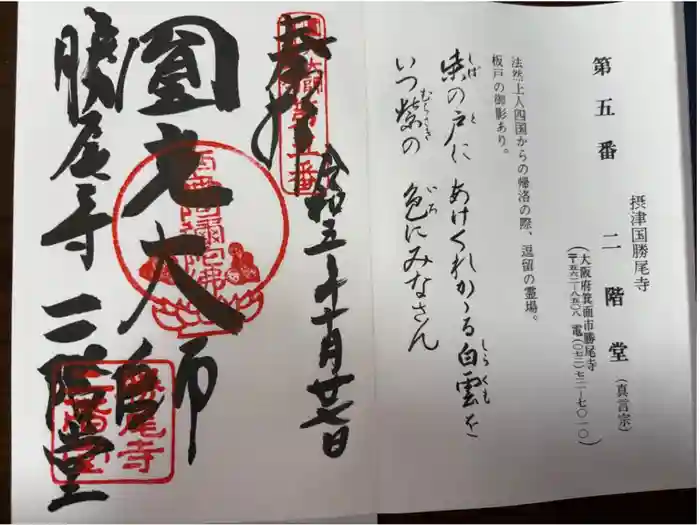 第五番
摂津国勝尾寺
二階堂(真言宗)
(大阪府箕面市勝尾寺
〒五六二―八五〇八 電(〇七二)七二一―七〇一〇)
法然上人四国からの帰洛の際、逗留の霊場。
板戸の御影あり。
柴の戸に あけくれかゝる白雲を
いつ紫の 色にみなさん
奉拝
令和五年十月廿七日
圓光大師
勝尾寺 二階堂